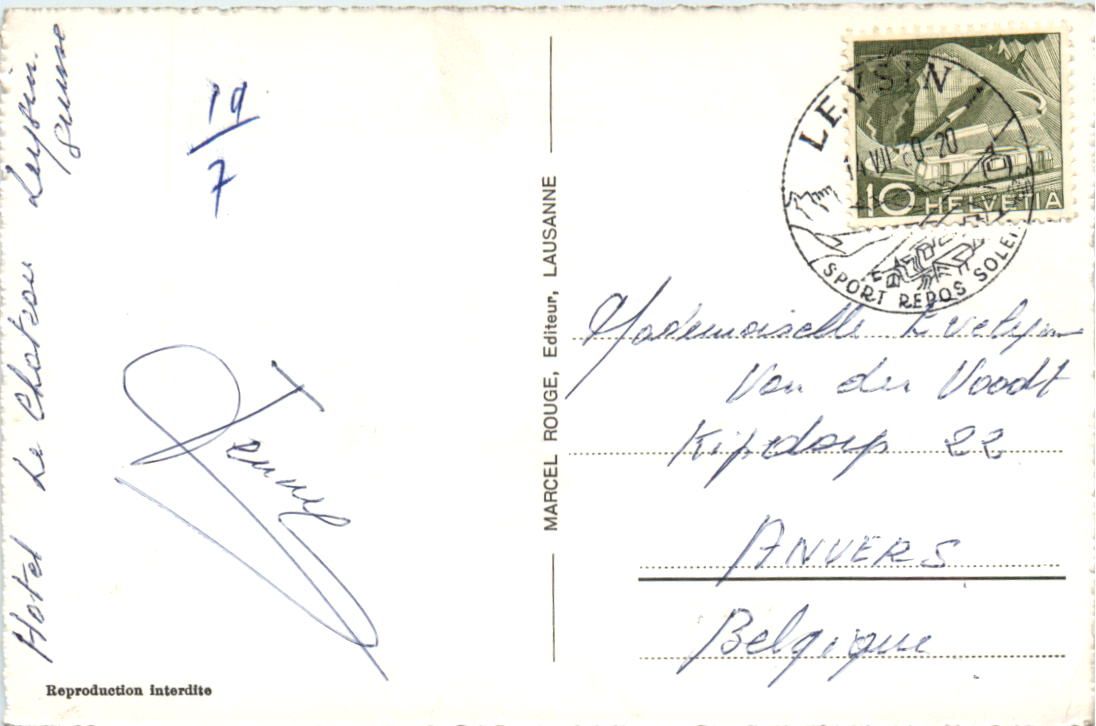 Hotel Le Chateau Leysin.
Suisse
19
7
Jenny
Reproduction interdite
MARCEL ROUGE, Editeur, LAUSANNE
LEYSIN
10 HELVETIA
SPORT REPOS SOLEIL
Mademoiselle Evelyn
Van der Voodt
Kipdorp 22
ANVERS
Belgique